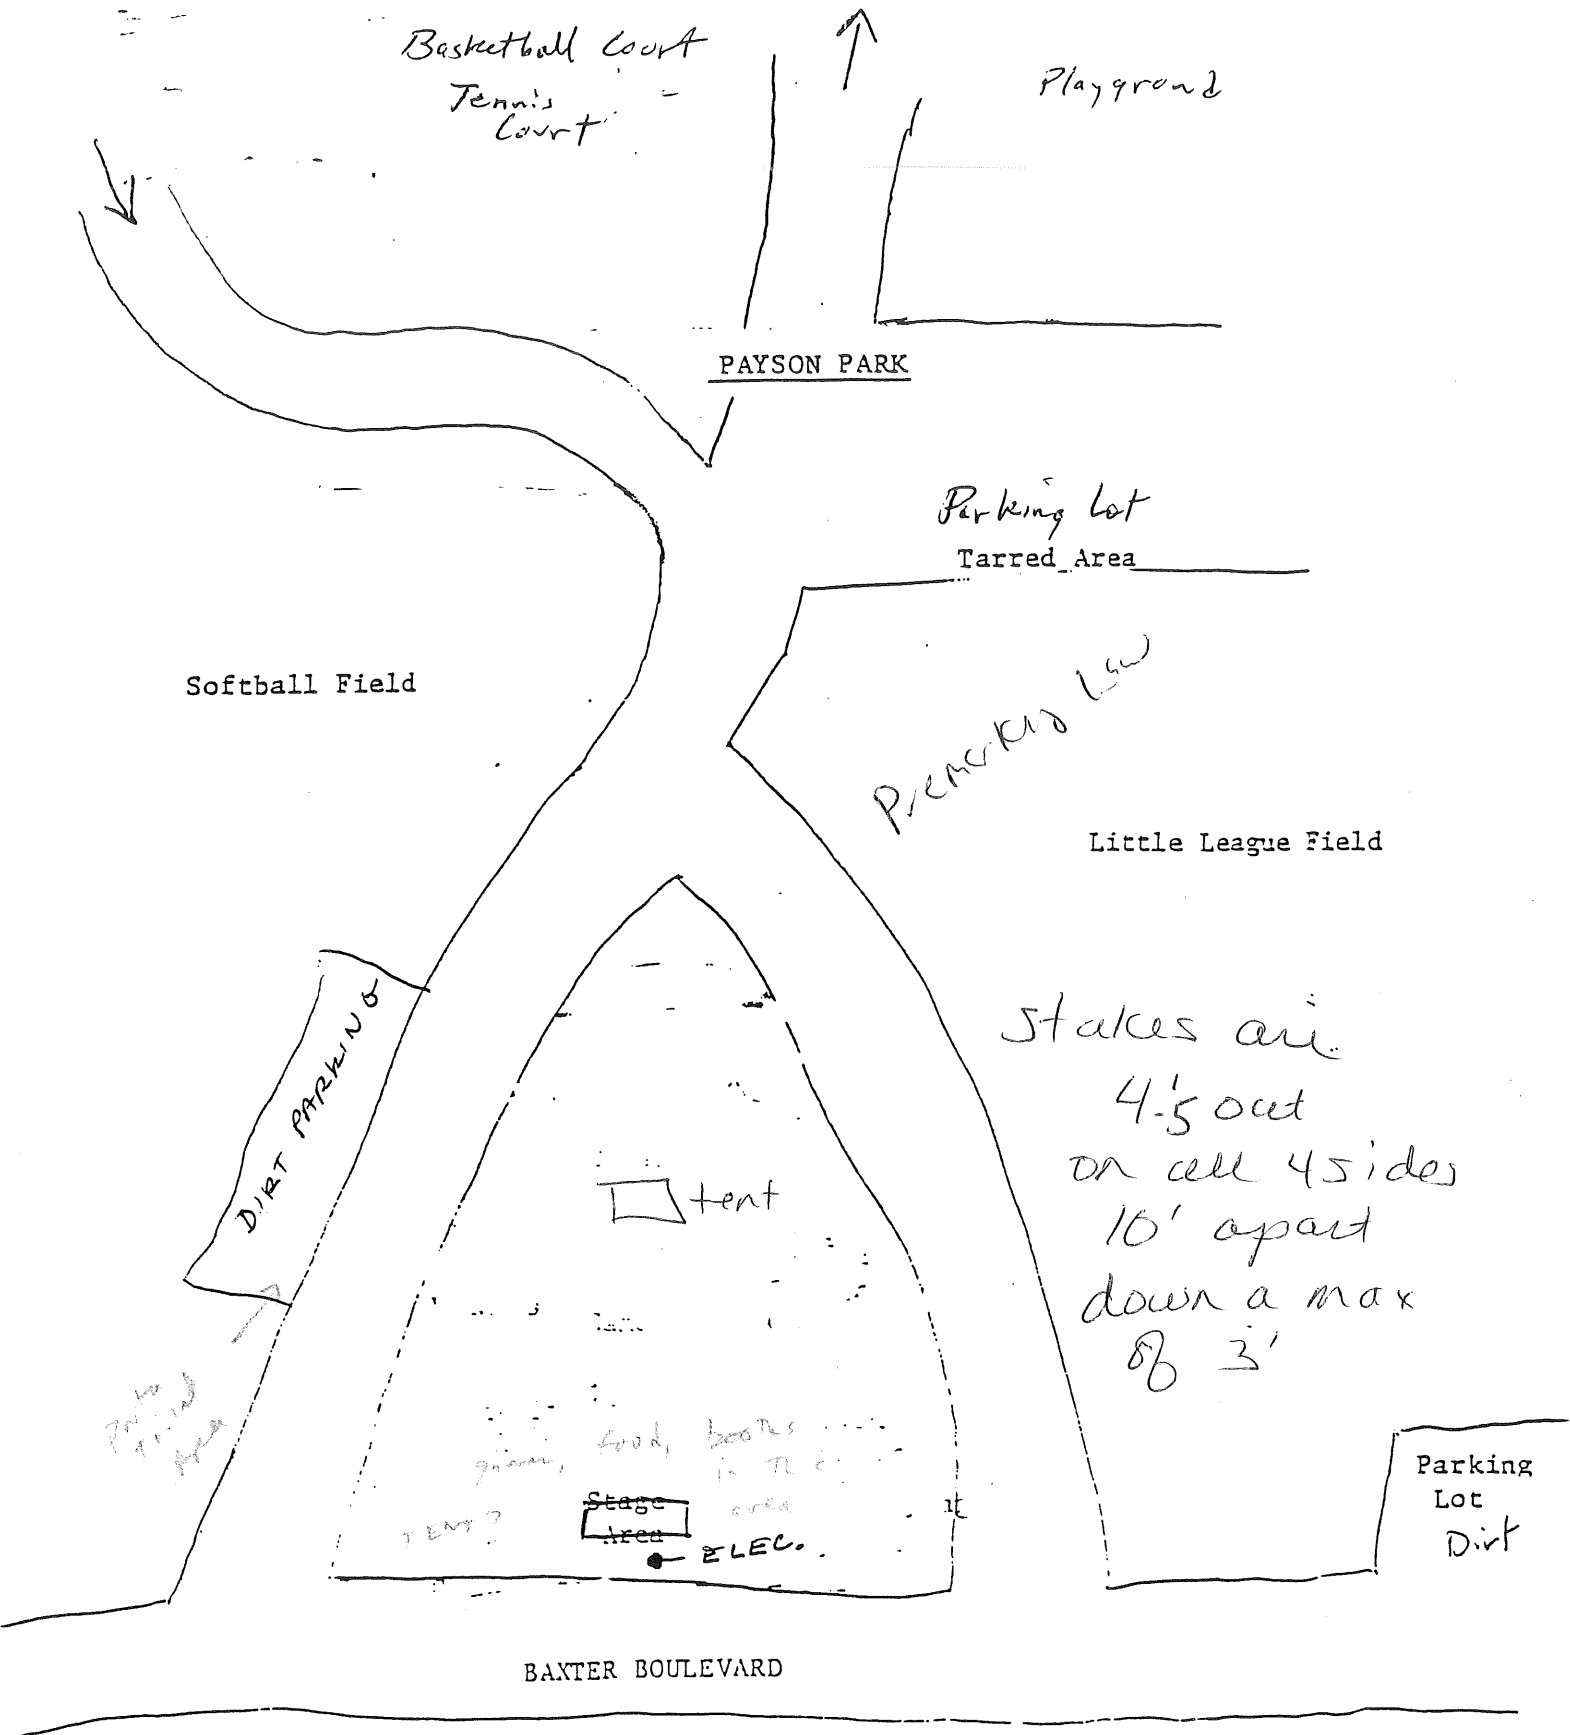 Basketball Court
Tennis
Court
Playground
PAYSON PARK
Parking Lot
Tarred Area
Softball Field
Little League Field
DIRT PARKING
Stakes are
4-5' out
on all 4 sides
10' apart
down a max
of 3'
tent
food, booths
in the
area
TENT?
Stage
Area
ELEC.
Parking
Lot
Dirt
BAXTER BOULEVARD